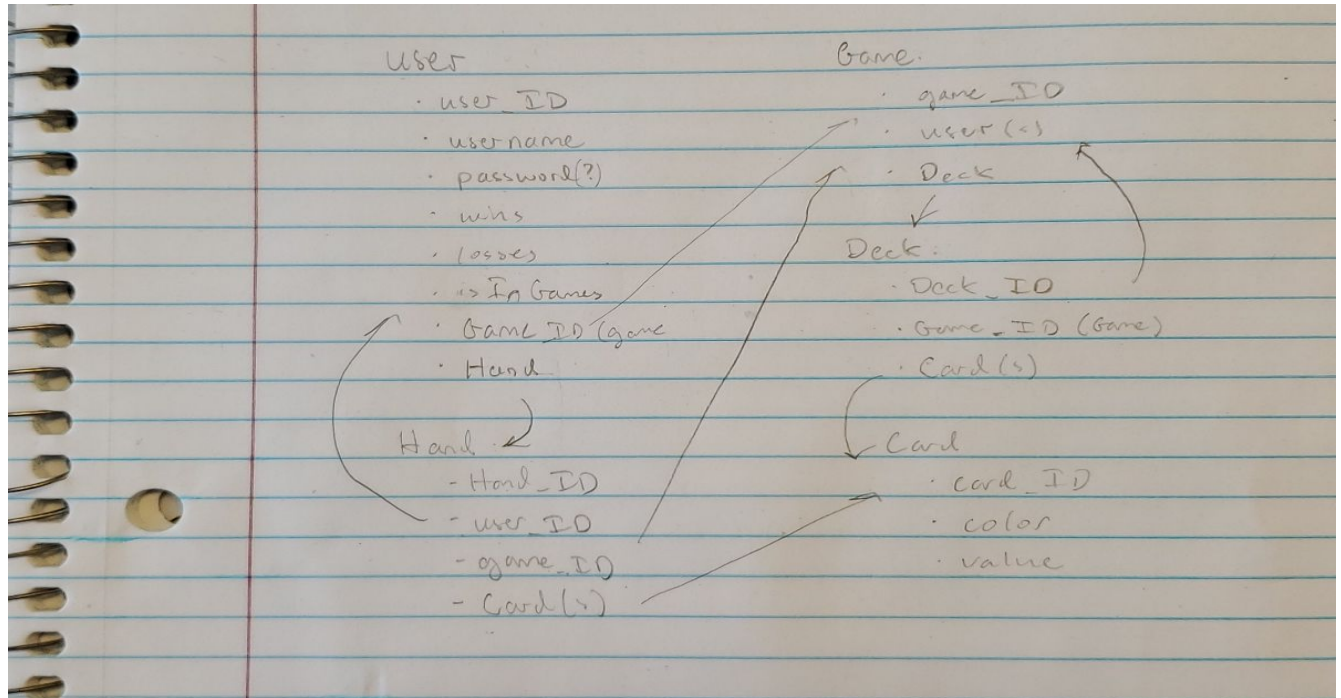 User
· user_ID
· username
· password(?)
· wins
· losses
· isInGames
· Game_ID (game
· Hand
Hand
- Hand_ID
- user_ID
- game_ID
- Card(s)
Game.
· game_ID
· user(s)
· Deck
Deck:
· Deck_ID
· Game_ID (Game)
· Card(s)
Card
· card_ID
· color
· value